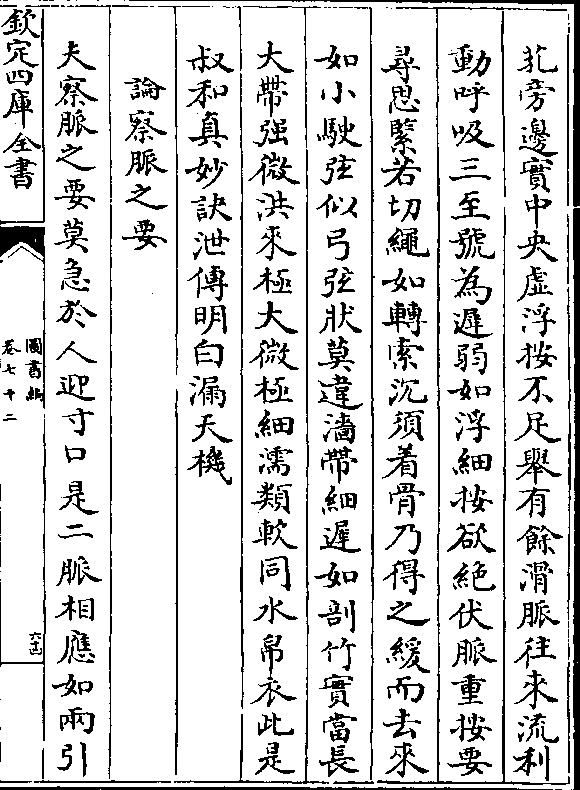 芤旁邊實中央虚浮按不足舉有餘滑脈往來流利
動呼吸三至號為遲弱如浮細按欲絶伏脈重按要
尋思緊若切繩如轉索沉須着骨乃得之緩而去來
如小駛弦似弓弦狀莫違濇帶細遲如剖竹實當長
大帶强微洪來極大微極細濡類軟同水帛衣此是
叔和真妙訣泄傳明白漏天機
論察脈之要
夫察脈之要莫急於人迎寸口是二脈相應如兩引
欽定四庫全書
圖書編
卷七十二